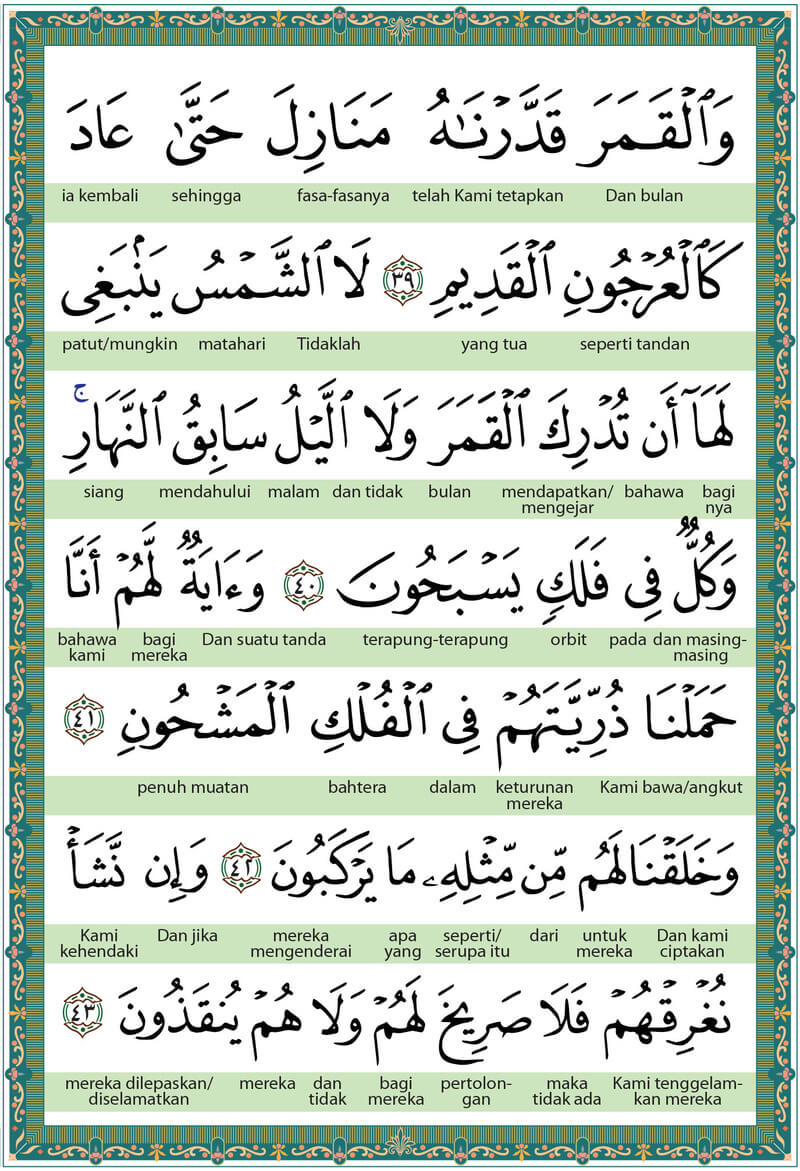 وَٱلْقَمَرَ قَدَّرْنَـٰهُ مَنَازِلَ حَتَّىٰ عَادَ
ia kembali sehingga fasa-fasanya telah Kami tetapkan Dan bulan
كَٱلْعُرْجُونِ ٱلْقَدِيمِ ٣٩ لَا ٱلشَّمْسُ يَنۢبَغِى
patut/mungkin matahari Tidaklah yang tua seperti tandan
لَهَآ أَن تُدْرِكَ ٱلْقَمَرَ وَلَا ٱلَّيْلُ سَابِقُ ٱلنَّهَارِ ۚ
siang mendahului malam dan tidak bulan mendapatkan/ bahawa bagi
mengejar nya
وَكُلٌّ فِى فَلَكٍ يَسْبَحُونَ ٤٠ وَءَايَةٌ لَّهُمْ أَنَّا
bahawa bagi Dan suatu tanda terapung-terapung orbit pada dan masing-
kami mereka masing
حَمَلْنَا ذُرِّيَّتَهُمْ فِى ٱلْفُلْكِ ٱلْمَشْحُونِ ٤١
penuh muatan bahtera dalam keturunan Kami bawa/angkut
mereka
وَخَلَقْنَا لَهُم مِّن مِّثْلِهِۦ مَا يَرْكَبُونَ ٤٢ وَإِن نَّشَأْ
Kami Dan jika mereka apa seperti/ dari untuk Dan kami
kehendaki mengenderai yang serupa itu mereka ciptakan
نُغْرِقْهُمْ فَلَا صَرِيخَ لَهُمْ وَلَا هُمْ يُنقَذُونَ ٤٣
mereka dilepaskan/ mereka dan bagi pertolon- maka Kami tenggelam-
diselamatkan tidak mereka gan tidak ada kan mereka